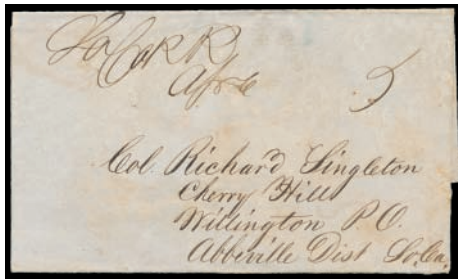 So Ca R R
Apr 6
5
Col. Richard Singleton
Cherry Hill
Willington P. O.
Abbeville Dist So. Ca.